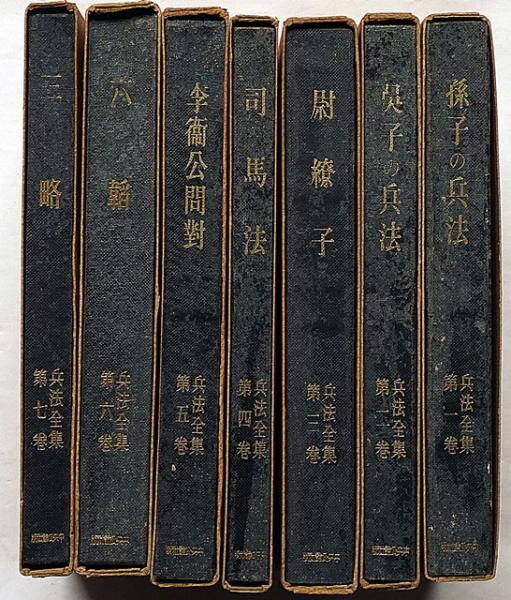 孫子の兵法
兵法全集
第一巻
吳子の兵法
兵法全集
第二巻
尉繚子
兵法全集
第三巻
司馬法
兵法全集
第四巻
李衞公問對
兵法全集
第五巻
六韜
兵法全集
第六巻
三略
兵法全集
第七巻